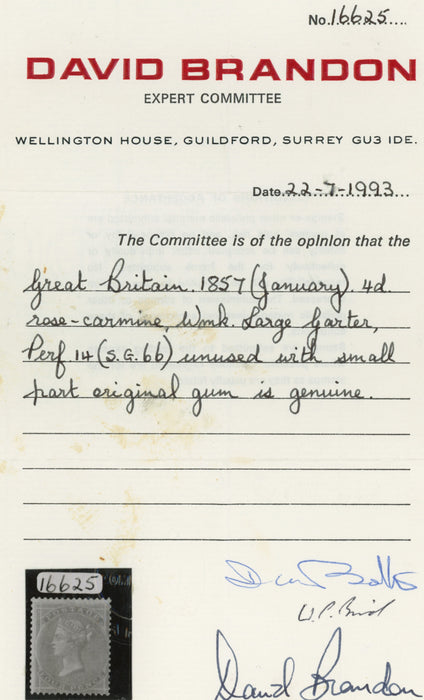 No. 16625
DAVID BRANDON
EXPERT COMMITTEE
WELLINGTON HOUSE, GUILDFORD, SURREY GU3 IDE.
Date 22-7-1993
The Committee is of the opinion that the
Great Britain. 1857 (January). 4d.
rose-carmine, Wmk. Large Garter,
Perf 14 (S.G. 66) unused with small
part original gum is genuine.
16625
POSTAGE
David Brandon